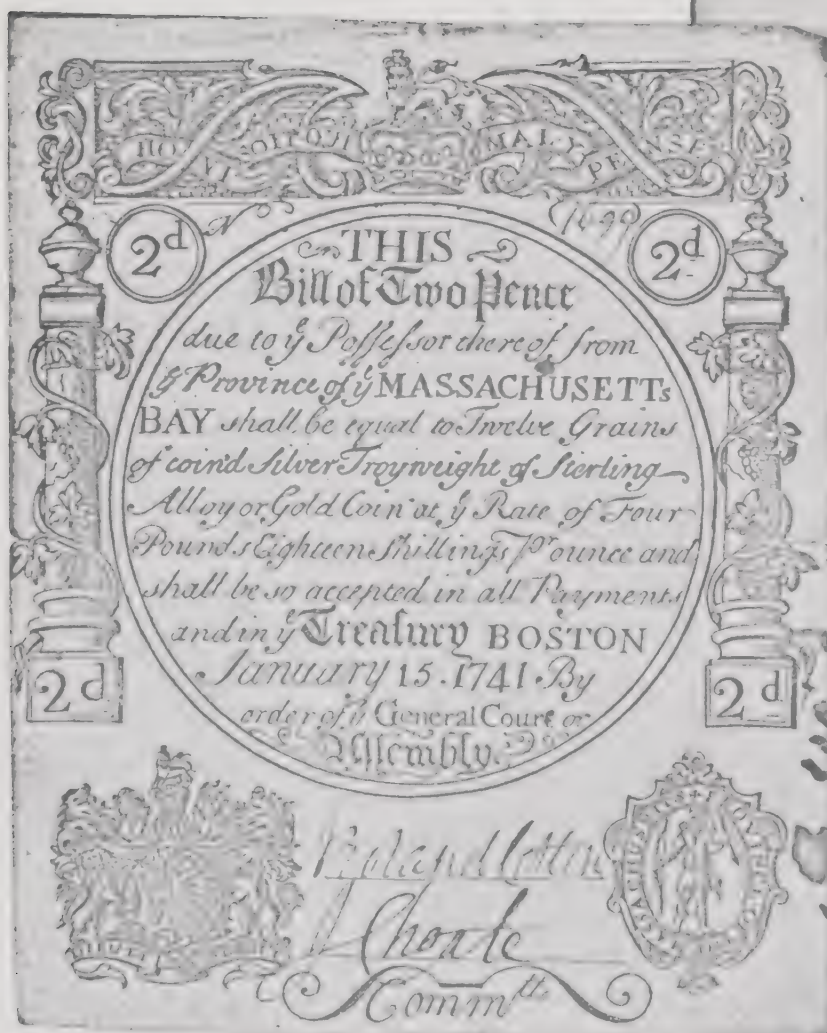 HONI SOIT QUI MAL Y PENSE
2d N 2d
THIS
Bill of Two Pence
due to yͤ Poſſeſsor thereof from
yͤ Province of yͤ MASSACHUSETTs
BAY shall be equal to Twelve Grains
of coin'd Silver Troyweight of Sterling
Alloy or Gold Coin at yͤ Rate of Four
Pounds Eighteen Shillings pr ounce and
shall be so accepted in all Payments
and in yͤ Treaſury BOSTON
January 15. 1741. By
order of yͤ General Court or
Aſſembly.
2d 2d
Choate
Commtt